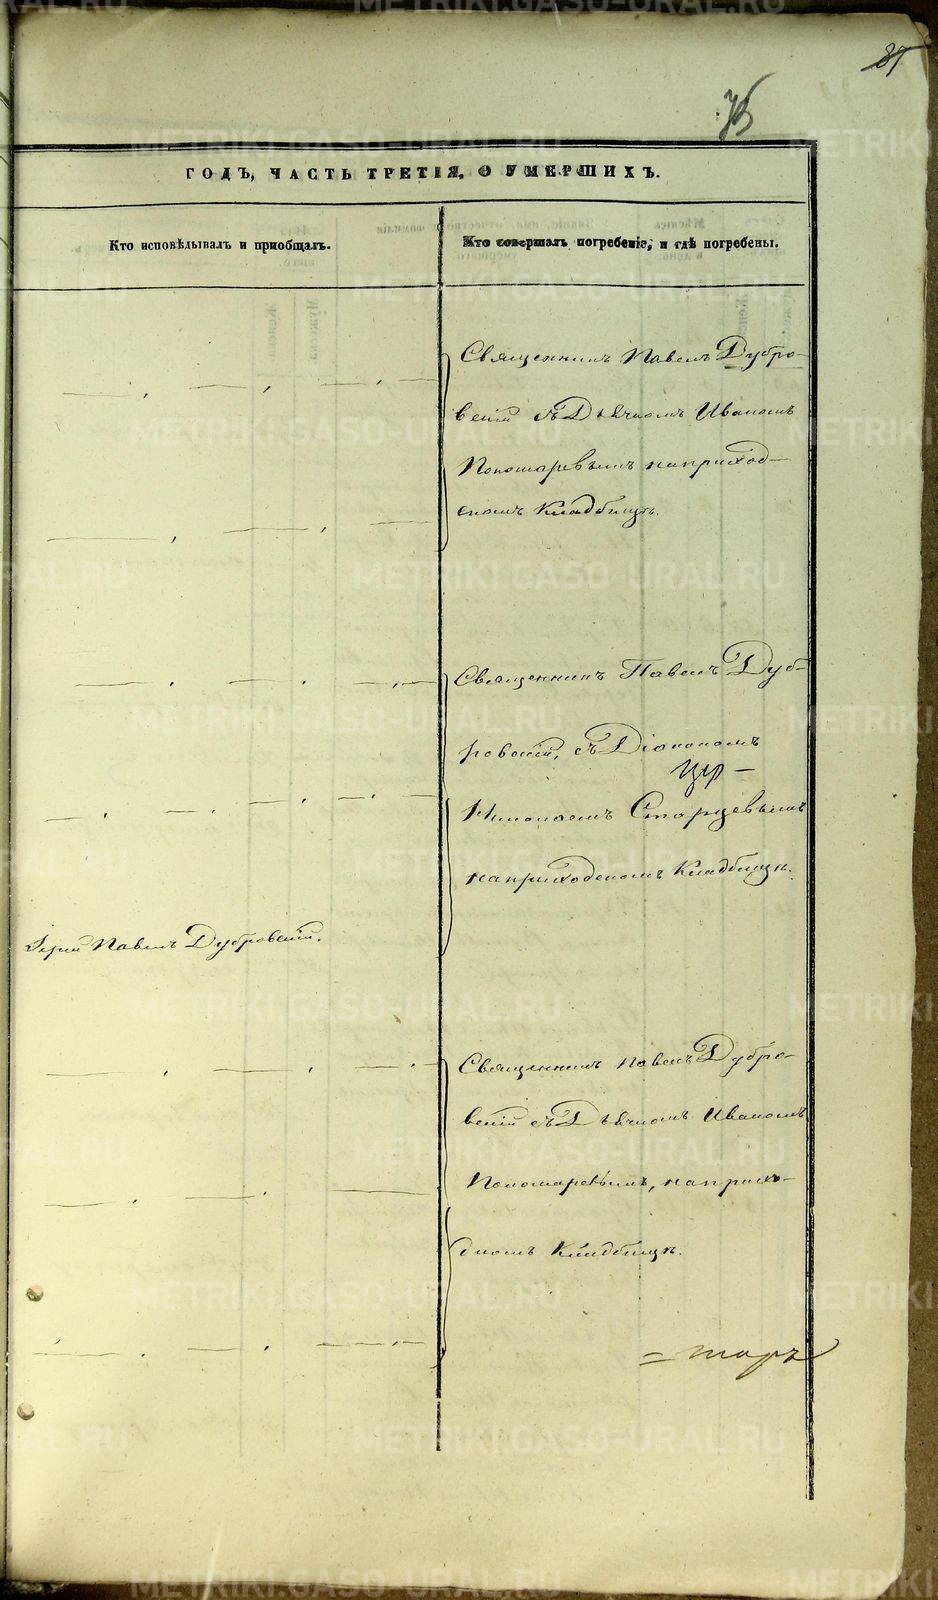 87
75
ГОДЪ, ЧАСТЬ ТРЕТІЯ, О УМЕРШИХЪ.
Кто исповѣдывалъ и пріобщалъ.
Кто совершалъ погребеніе, и гдѣ погребены.
Священникъ Павелъ Дубро-
вскій съ Дьячкомъ Иваномъ
Пономаревымъ на приход-
скомъ Кладбищѣ.
Священникъ Павелъ Дуб-
ровскій, съ Діакономъ
Николаемъ Старцевымъ
на приходскомъ Кладбищѣ.
Іерей Павелъ Дубровскій.
Священникъ Павелъ Дубро-
вскій съ Дьячкомъ Иваномъ
Пономаревымъ, на прихо-
дномъ Кладбищѣ.
METRIKI.GASO-URAL.RU